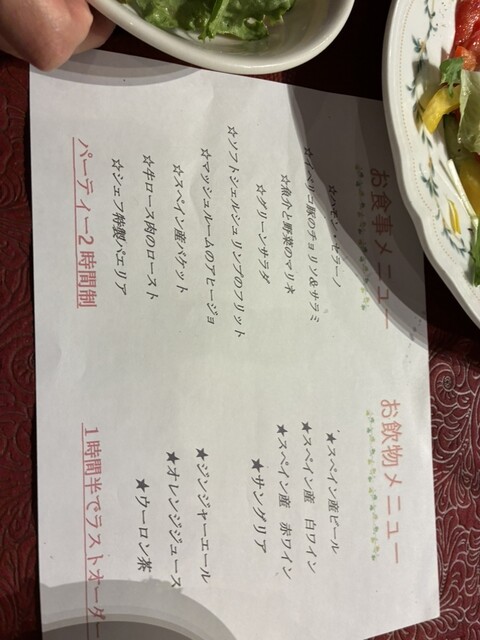 お食事メニュー
☆ハモン・セラーノ
☆イベリコ豚のチョリソ&サラミ
☆魚介と野菜のマリネ
☆グリーンサラダ
☆ソフトシェルシュリンプのフリット
☆マッシュルームのアヒージョ
☆スペイン産バケット
☆牛ロース肉のロースト
☆シェフ特製パエリア
パーティー2時間制
お飲物メニュー
★スペイン産ビール
★スペイン産 白ワイン
★スペイン産 赤ワイン
★サングリア
★ジンジャーエール
★オレンジジュース
★ウーロン茶
1時間半でラストオーダー